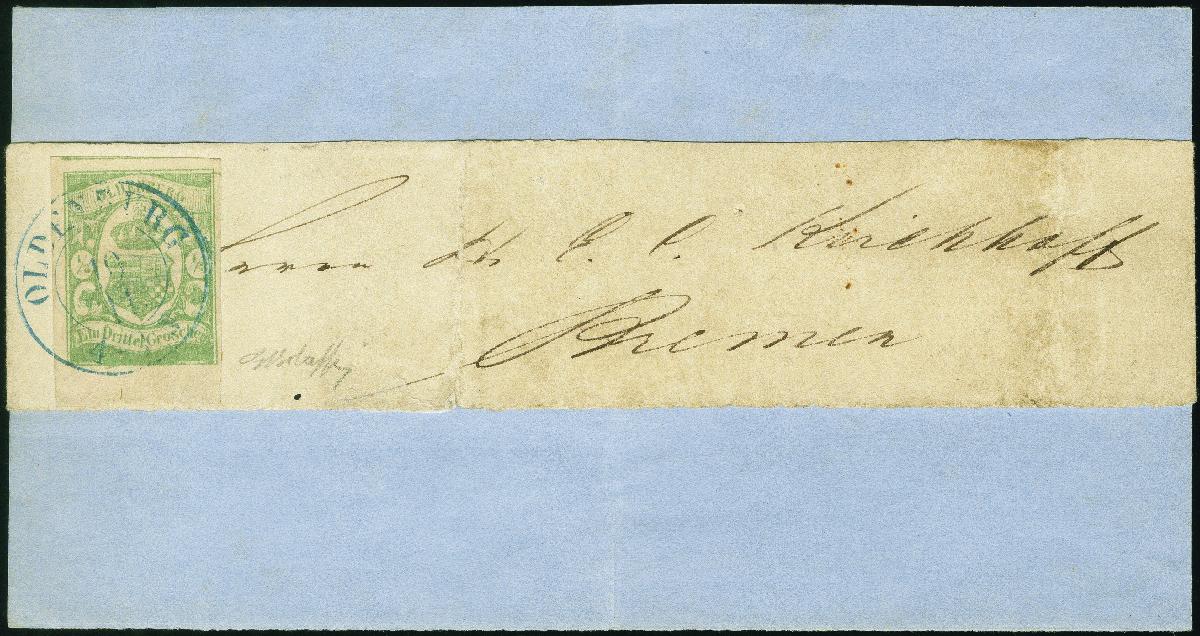 OLDENBURG
OLDENBURG
Ein Drittel Groschen
Herrn Dr. C. C. Kirchhoff
Bremen